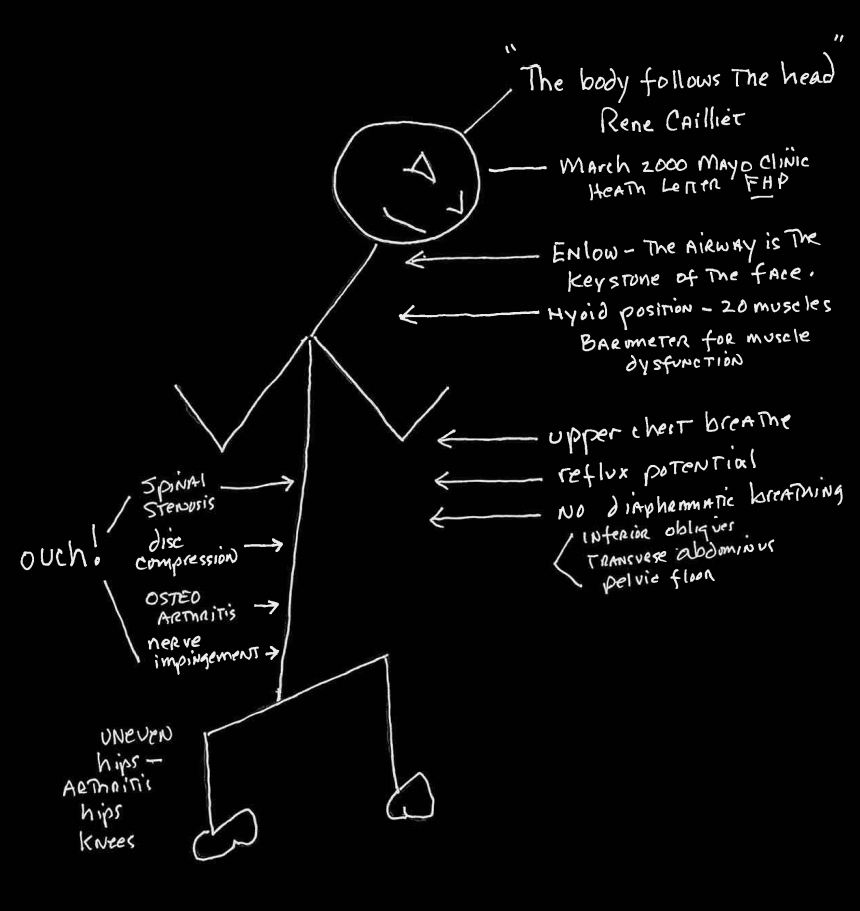 "The body follows The head"
Rene Cailliet
March 2000 Mayo Clinic
Heath Letter FHP
Enlow - The Airway is The
Keystone of The face.
Hyoid position - 20 muscles
Barometer for muscle
dysfunction
upper chest breathe
reflux potential
No diaphermatic breathing
Inferior obliques
Transverse abdominus
pelvic floor
Spinal
Stenosis
disc
compression
ouch!
Osteo
Arthritis
nerve
impingement
Uneven
hips -
Arthritis
hips
Knees